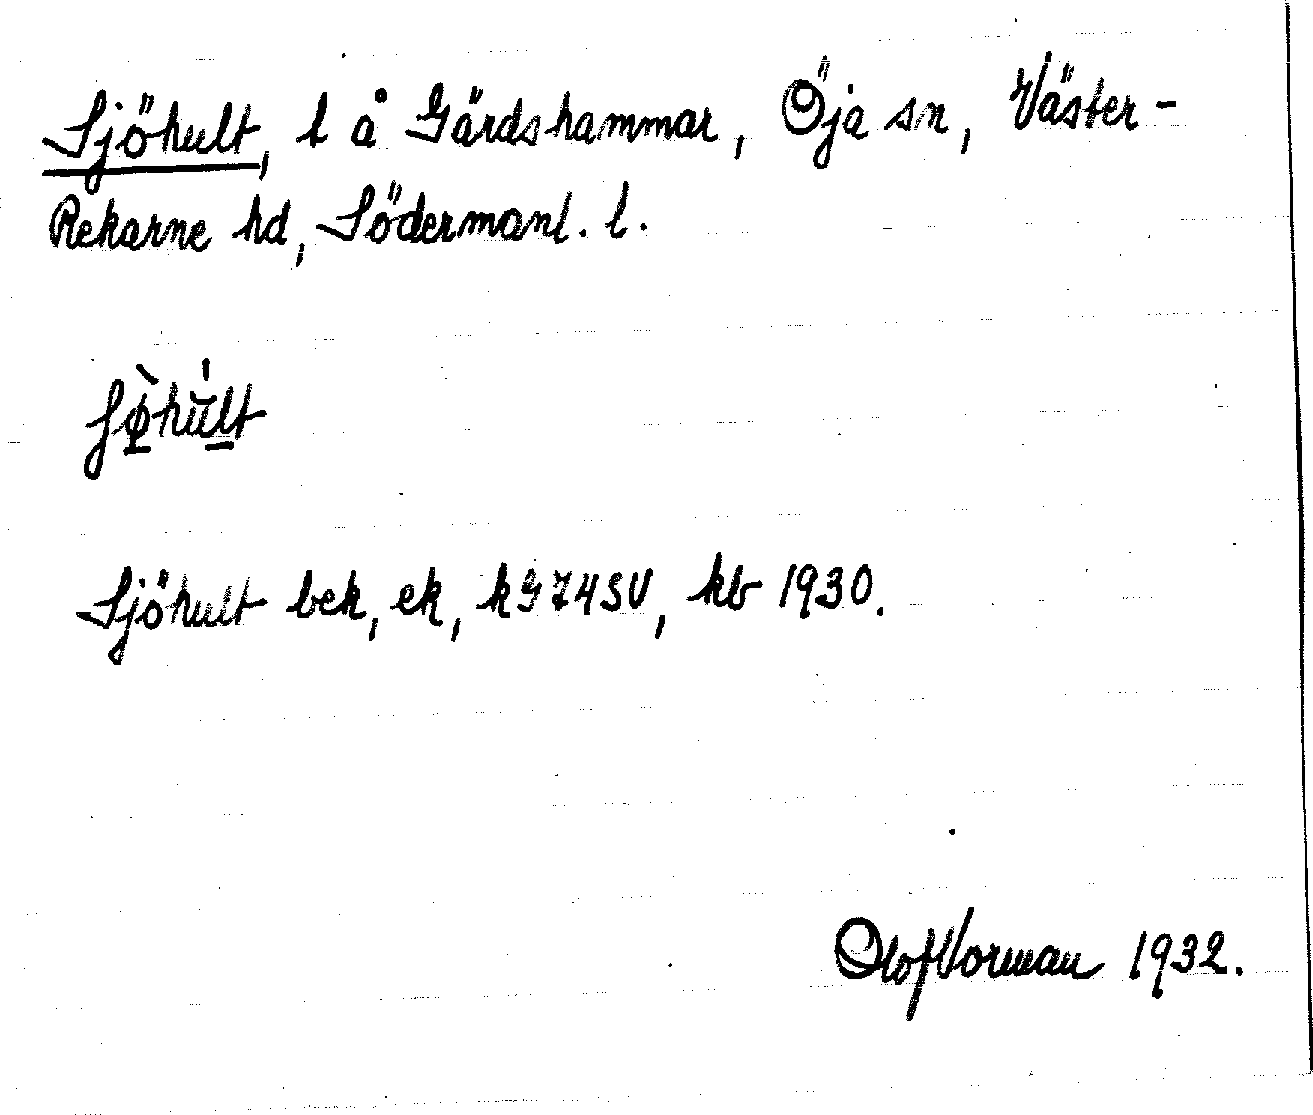 Sjöhult, l å Gärdshammar, Öja sn, Väster-
Rekarne hd, Södermanl. l.
Sjöhult bek, ek, kG74SV, kb 1930.
Olof Vorman 1932.